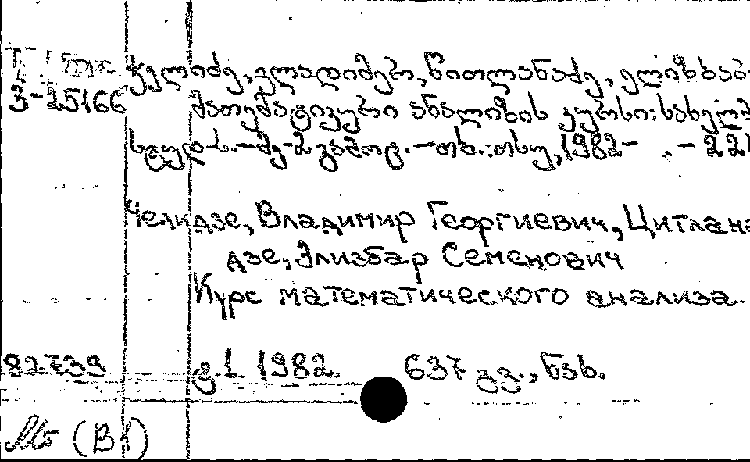 ჭელიძე, ვლადიმერ, წითლანაძე, ელიზბარ
3-25166 მათემატიკური ანალიზის კურსი: სახელმ
სტუდ-ს. – მე-2 გამოც. – თბ.: თსუ, 1982-
Челидзе, Владимир Георгиевич, Цитлана-
дзе, Элизбар Семенович
Курс математического анализа.
82739 ტ.1 1982. 637 გვ., ნახ.
(В1)